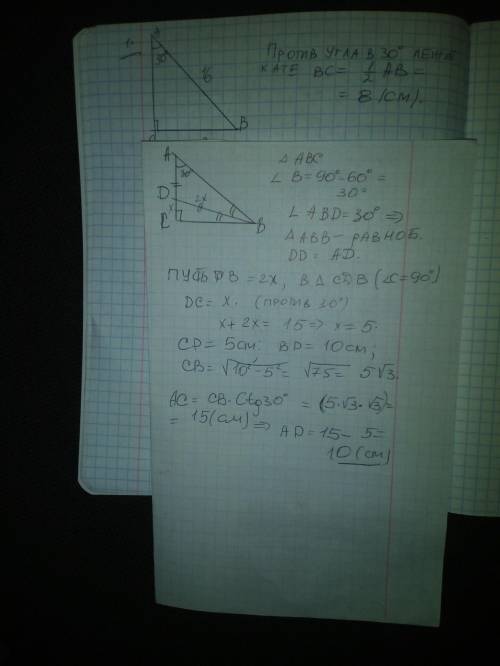 1.
A
30°
16
B
ПРОТИВ УГЛА В 30° ЛЕЖИТ
КАТЕ BC = 1/2 AB =
= 8 (см).
A
30°
D
2x
x
C
B
△ ABC
∠ B = 90° - 60° =
30°
∠ ABD = 30° ⇒
△ ABB – РАВНОБ.
DD = AD.
ПУСТЬ DB = 2X, В △ CDB (∠C = 90°)
DC = X. (ПРОТИВ 30°)
x + 2x = 15 ⇒ x = 5.
CD = 5см. BD = 10 см;
CB = √10² - 5² = √75 = 5√3.
AC = CB · Ctg 30° = (5·√3·√3) =
= 15 (см) ⇒ AD = 15 – 5 =
10 (см)